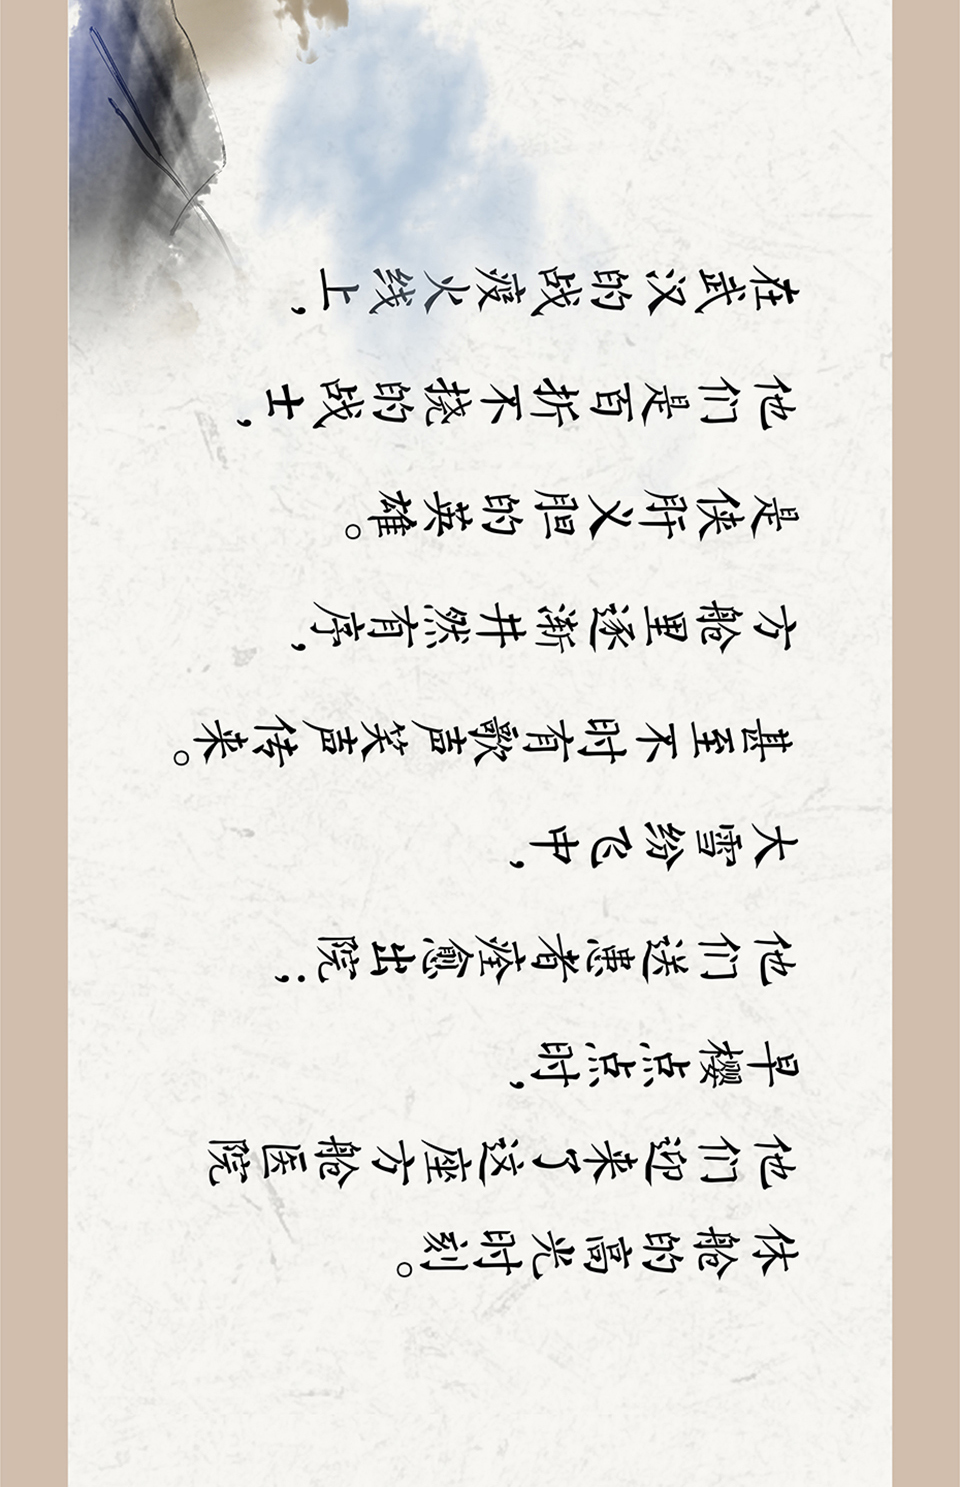 在武汉的战疫火线上，
他们是百折不挠的战士，
是侠肝义胆的英雄。
方舱里逐渐井然有序，
甚至不时有歌声笑声传来。
大雪纷飞中，
他们送患者痊愈出院；
早樱点点时，
他们迎来了这座方舱医院
休舱的高光时刻。